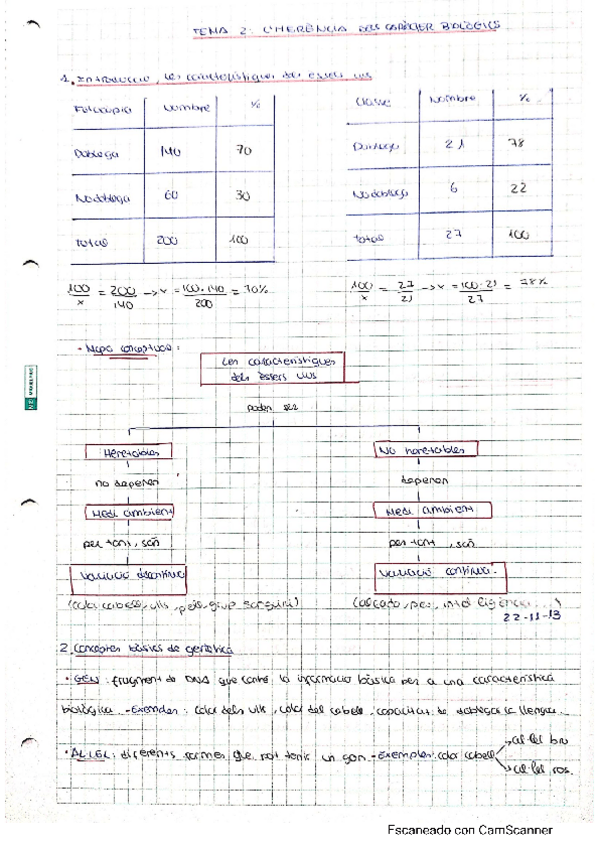 TEMA 2: L'HERÈNCIA DELS CARÀCTER BIOLÒGICS
1. Introducció, les característiques dels éssers vius
Fotocopia Nombre %
Doblega 140 70
No doblega 60 30
Total 200 100
Classe Nombre %
Doblega 21 78
No doblega 6 22
Total 27 100
100/x = 200/140 → x = 100·140/200 = 70%
100/x = 27/21 → x = 100·21/27 = 78%
· Mapa conceptual:
Les característiques
dels éssers vius
poden ser
Heretables
No heretables
no depenen
depenen
Medi ambient
Medi ambient
per tant, són
per tant, són
Variació discontinua
Variació continua.
(color cabell, ulls, pèls, grup sanguini)
pes, intel·ligència ...)
22-11-13
2. Conceptes bàsics de genètica
· GEN: fragment de DNA que conté la informació bàsica per a una característica
biològica. -Exemples: color dels ulls, color del cabell, capacitat de doblegar la llengua.
· AL·LEL: diferents formes que pot tenir un gen. -Exemples: color cabell
al·lel bru
al·lel ros.
Escaneado con CamScanner